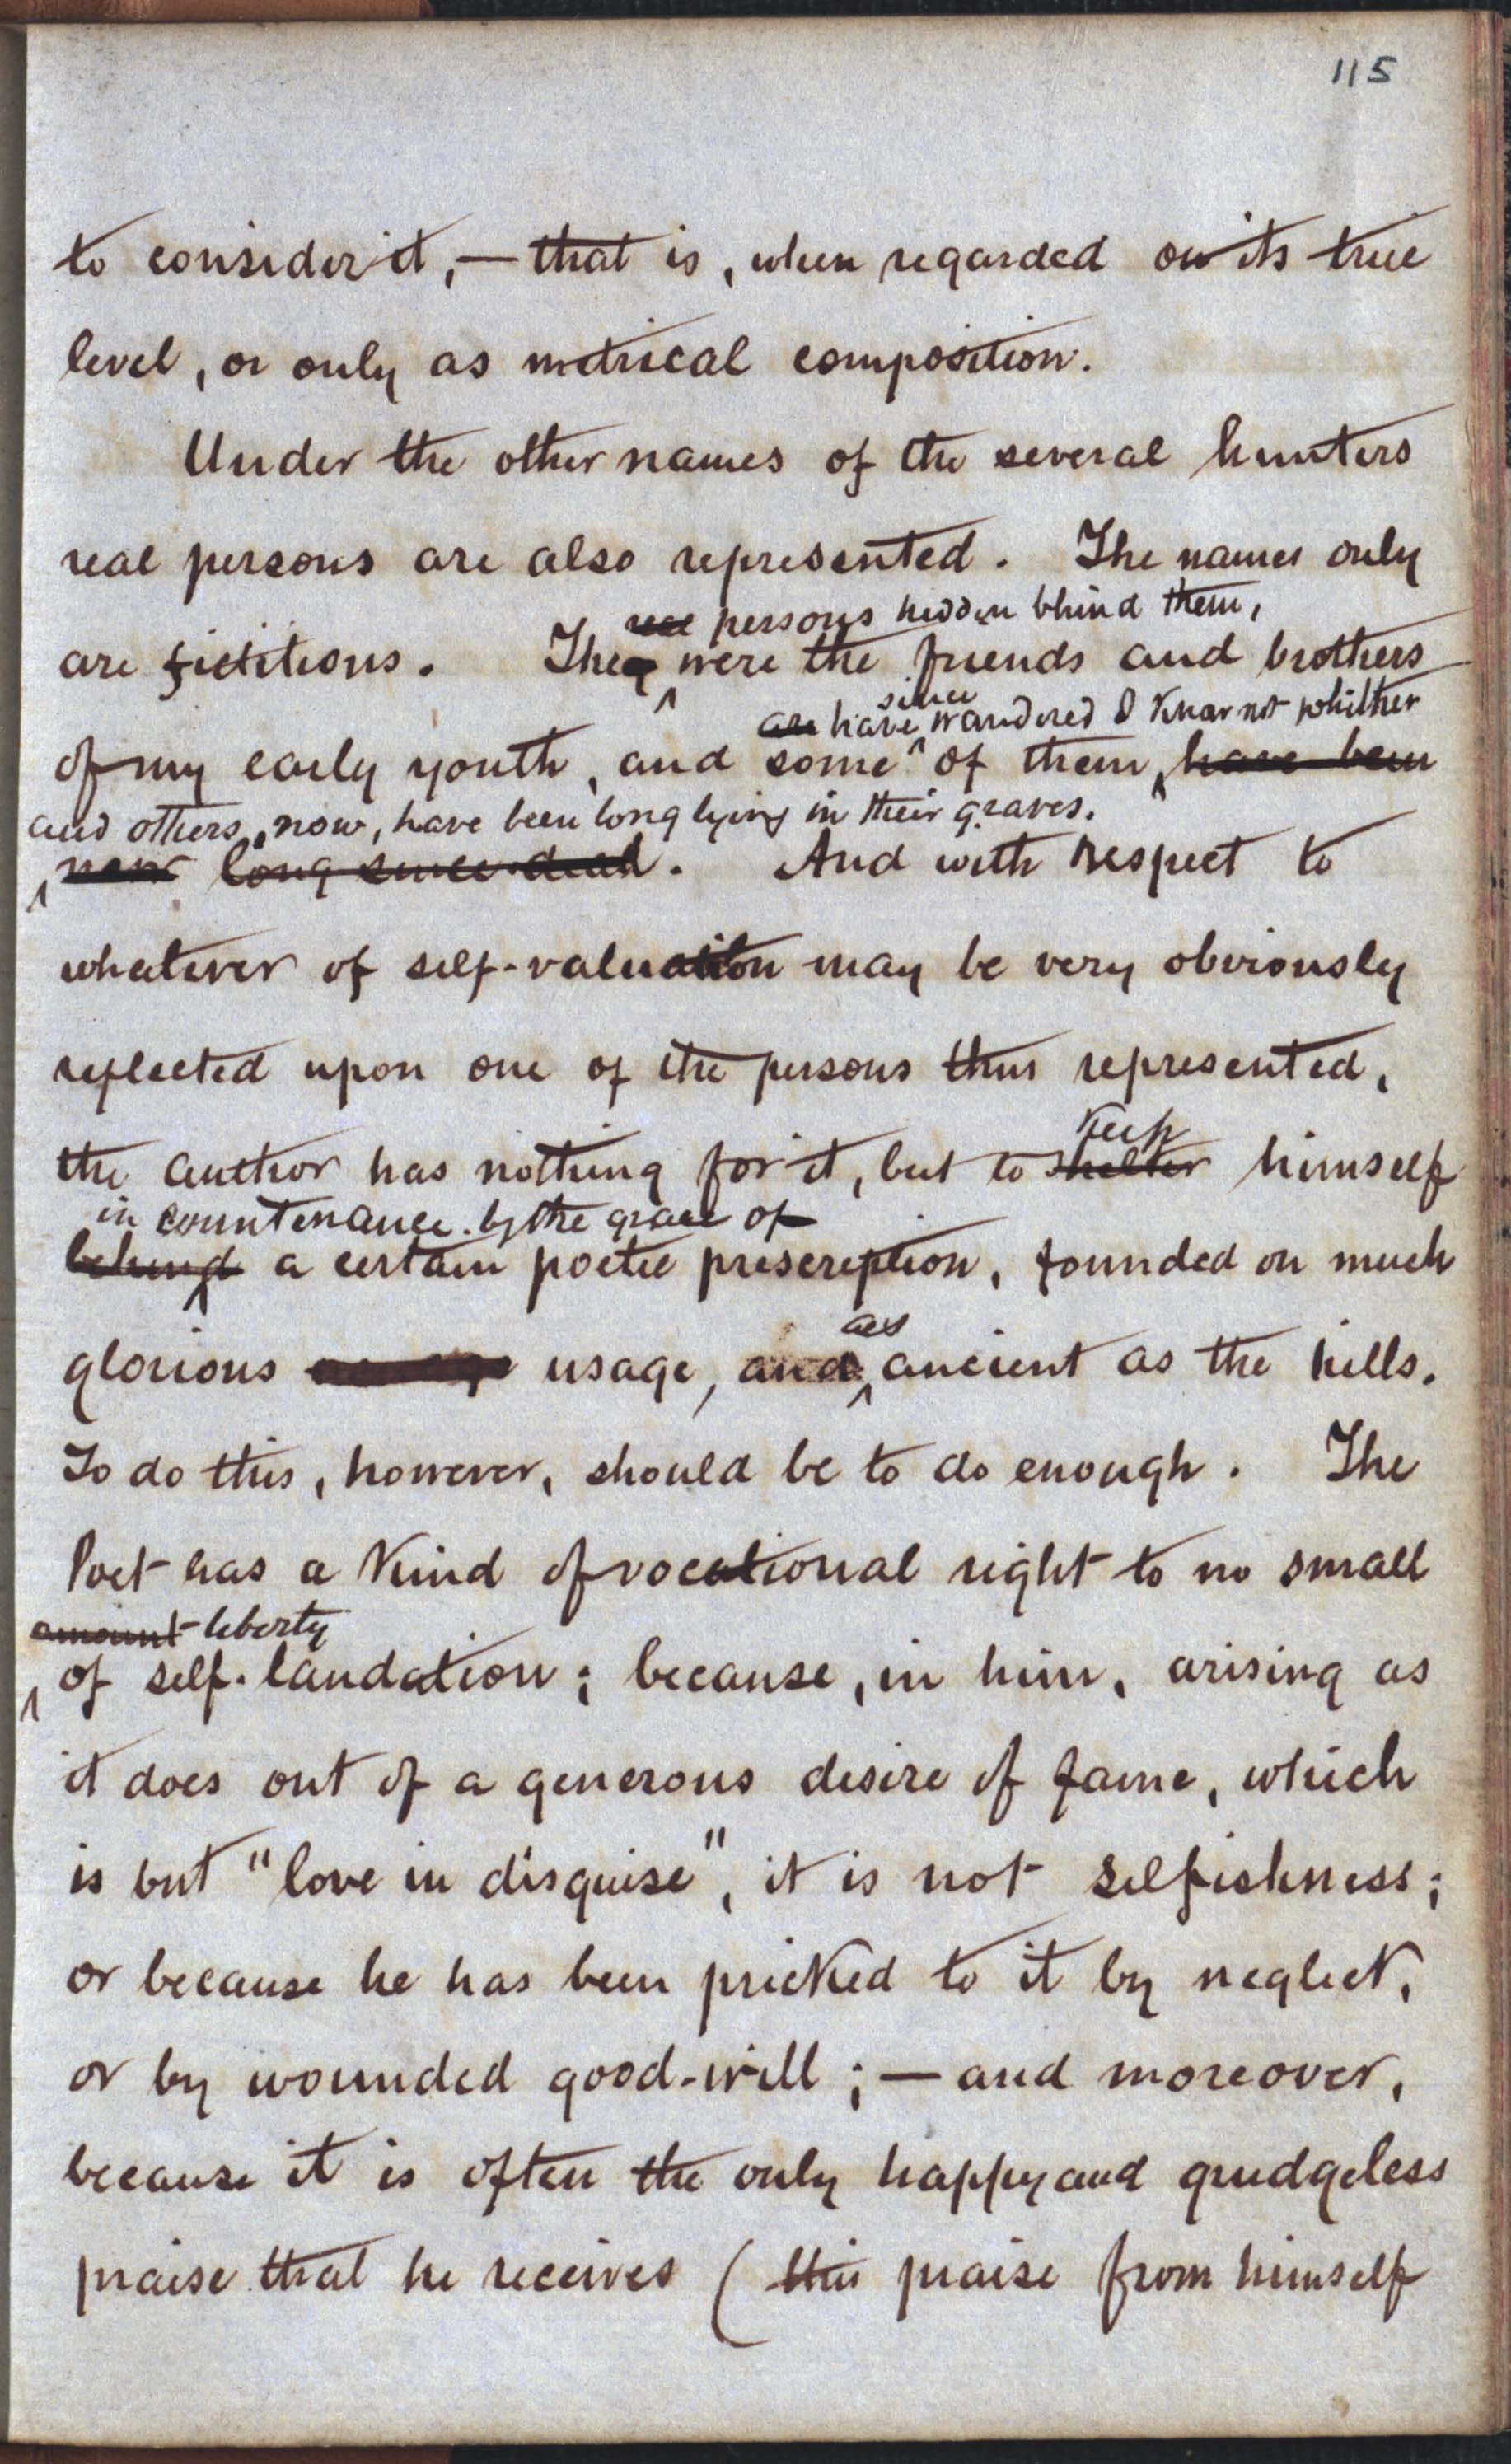 115
to consider it, — that is, when regarded on its true
level, or only as metrical composition.
Under the other names of the several hunters
real persons are also represented. The names only
persons hidden bhind them,
are fictitious. The were the friends and brothers
since
are have wandered I know not whither
of my early youth, and some of them, have been
and others, now, have been long lying in their graves.
now long since dead. And with respect to
whatever of self-valuation may be very obviously
reflected upon one of the persons thus represented,
Keep
the author has nothing for it, but to shelter himself
in countenance by the grace of
behind a certain poetic prescription, founded on much
as
glorious usage, and ancient as the hills.
To do this, however, should be to do enough. The
Poet has a Kind of vocational right to no small
amount liberty
of self-laudation; because, in him, arising as
it does out of a generous desire of fame, which
is but "love in disguise", it is not selfishness;
or because he has been pricked to it by neglect,
or by wounded good-will; — and moreover,
because it is often the only happy and grudgeless
praise that he receives (this praise from himself